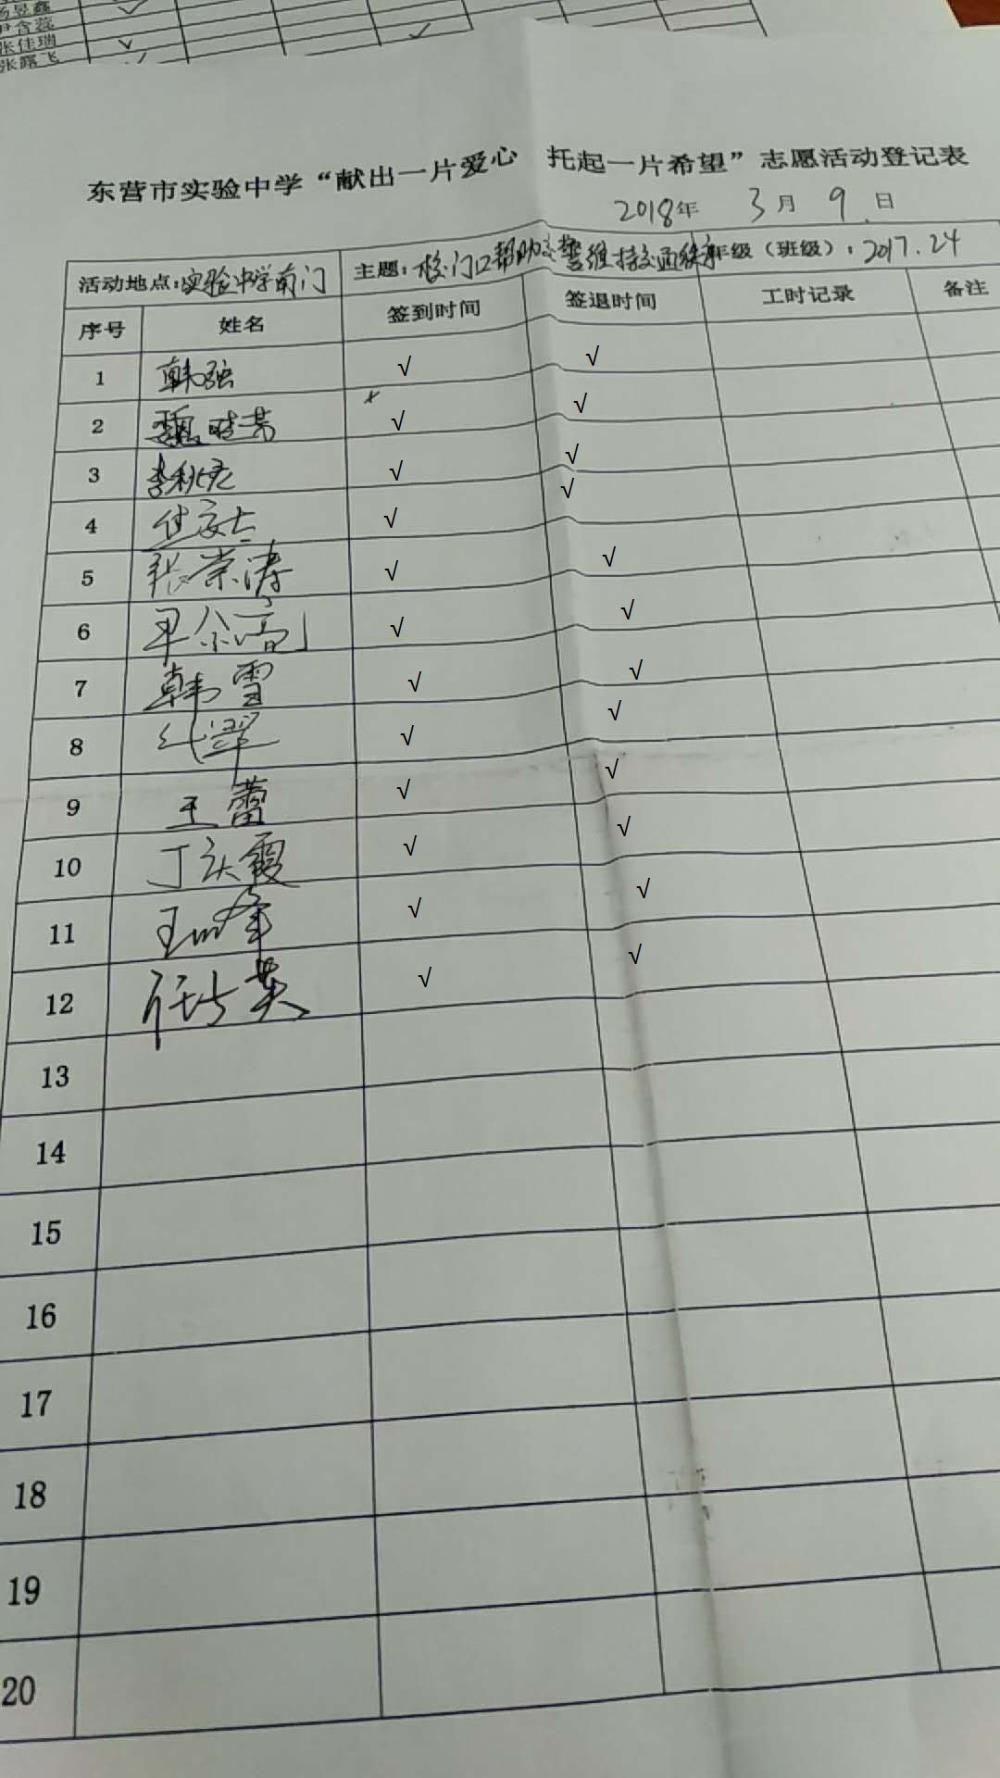 尹含蕊
张佳瑞
张露飞
东营市实验中学“献出一片爱心 托起一片希望”志愿活动登记表
2018年 3月 9日
活动地点:实验中学前门 主题:校门口帮助交警维持交通秩序 年级（班级）:2017.24
序号 姓名 签到时间 签退时间 工时记录 备注
1 韩强 √ √
2 魏晓芳 √ √
3 √ √
4 √ √
5 张崇涛 √ √
6 √ √
7 韩雪 √ √
8 √ √
9 王蕾 √ √
10 丁庆霞 √ √
11 √ √
12 √ √
13
14
15
16
17
18
19
20